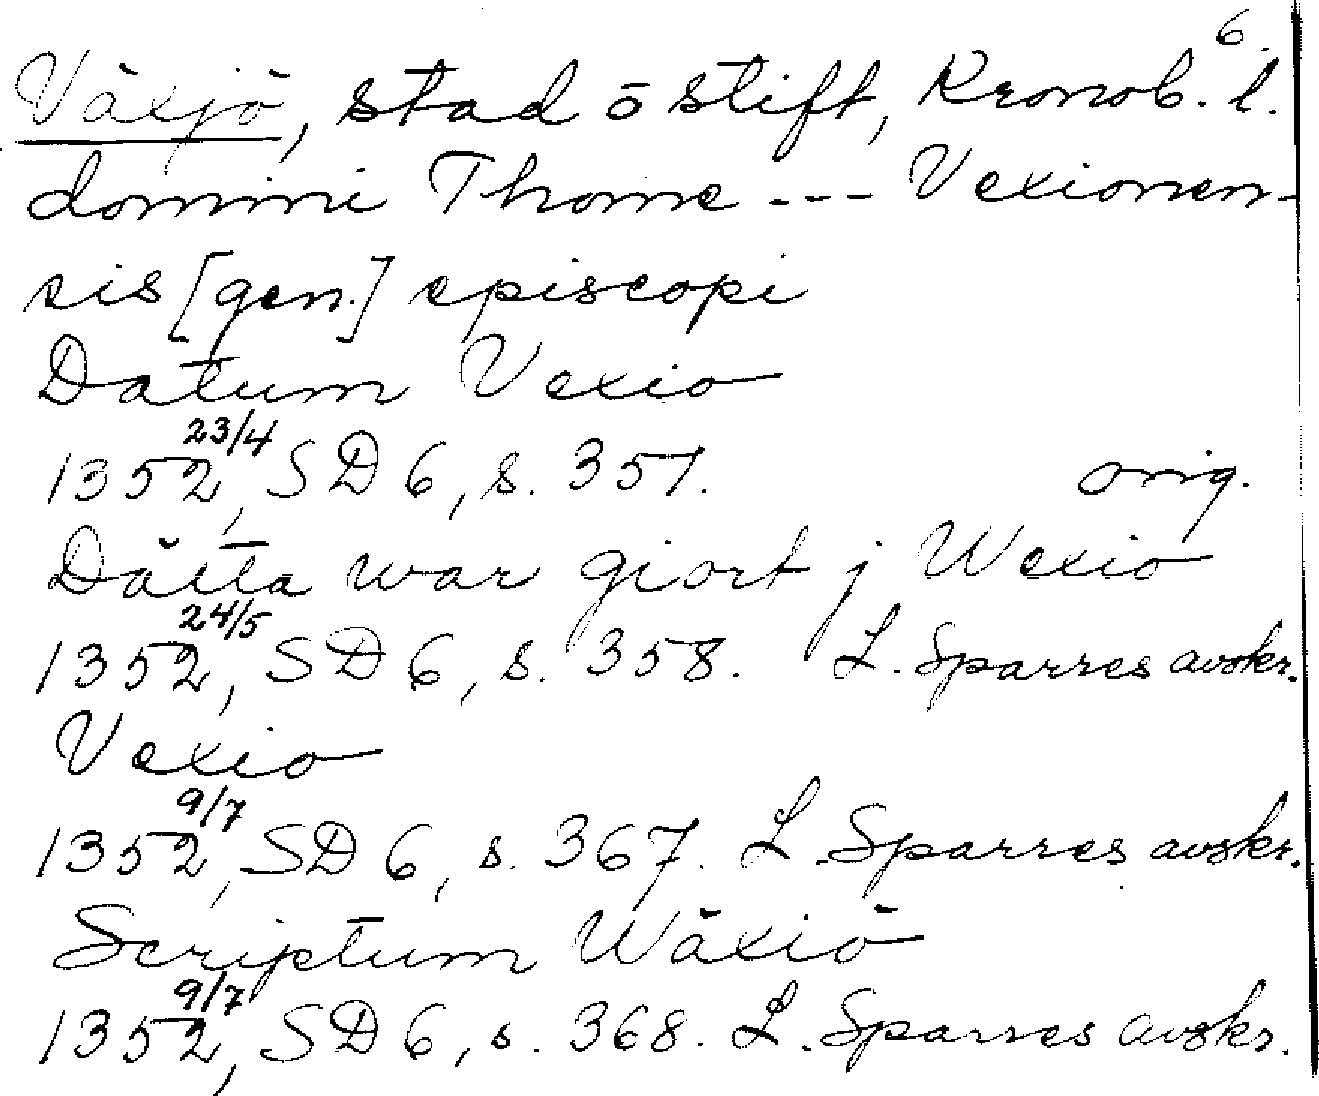 6.
Växjö, stad ō stift, Kronob. l.
domini Thome --- Vexionen-
sis [gen.] episcopi
Datum Vexio
1352 23/4, SD 6, s. 357. orig.
Dätta war giort j Wexio
1352 24/5, SD 6, s. 358. L. Sparres avskr.
Vexio
1352 9/7, SD 6, s. 367. L. Sparres avskr.
Scriptum Wäxiö
1352 9/7, SD 6, s. 368. L. Sparres avskr.